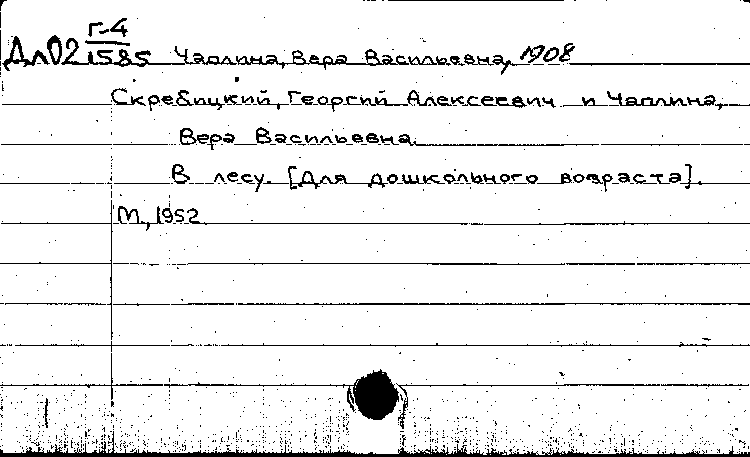 Дл02 Г-4/1585 Чаплина, Вера Васильевна, 1908
Скребицкий, Георгий Алексеевич и Чаплина,
Вера Васильевна.
В лесу. [Для дошкольного возраста].
М., 1952